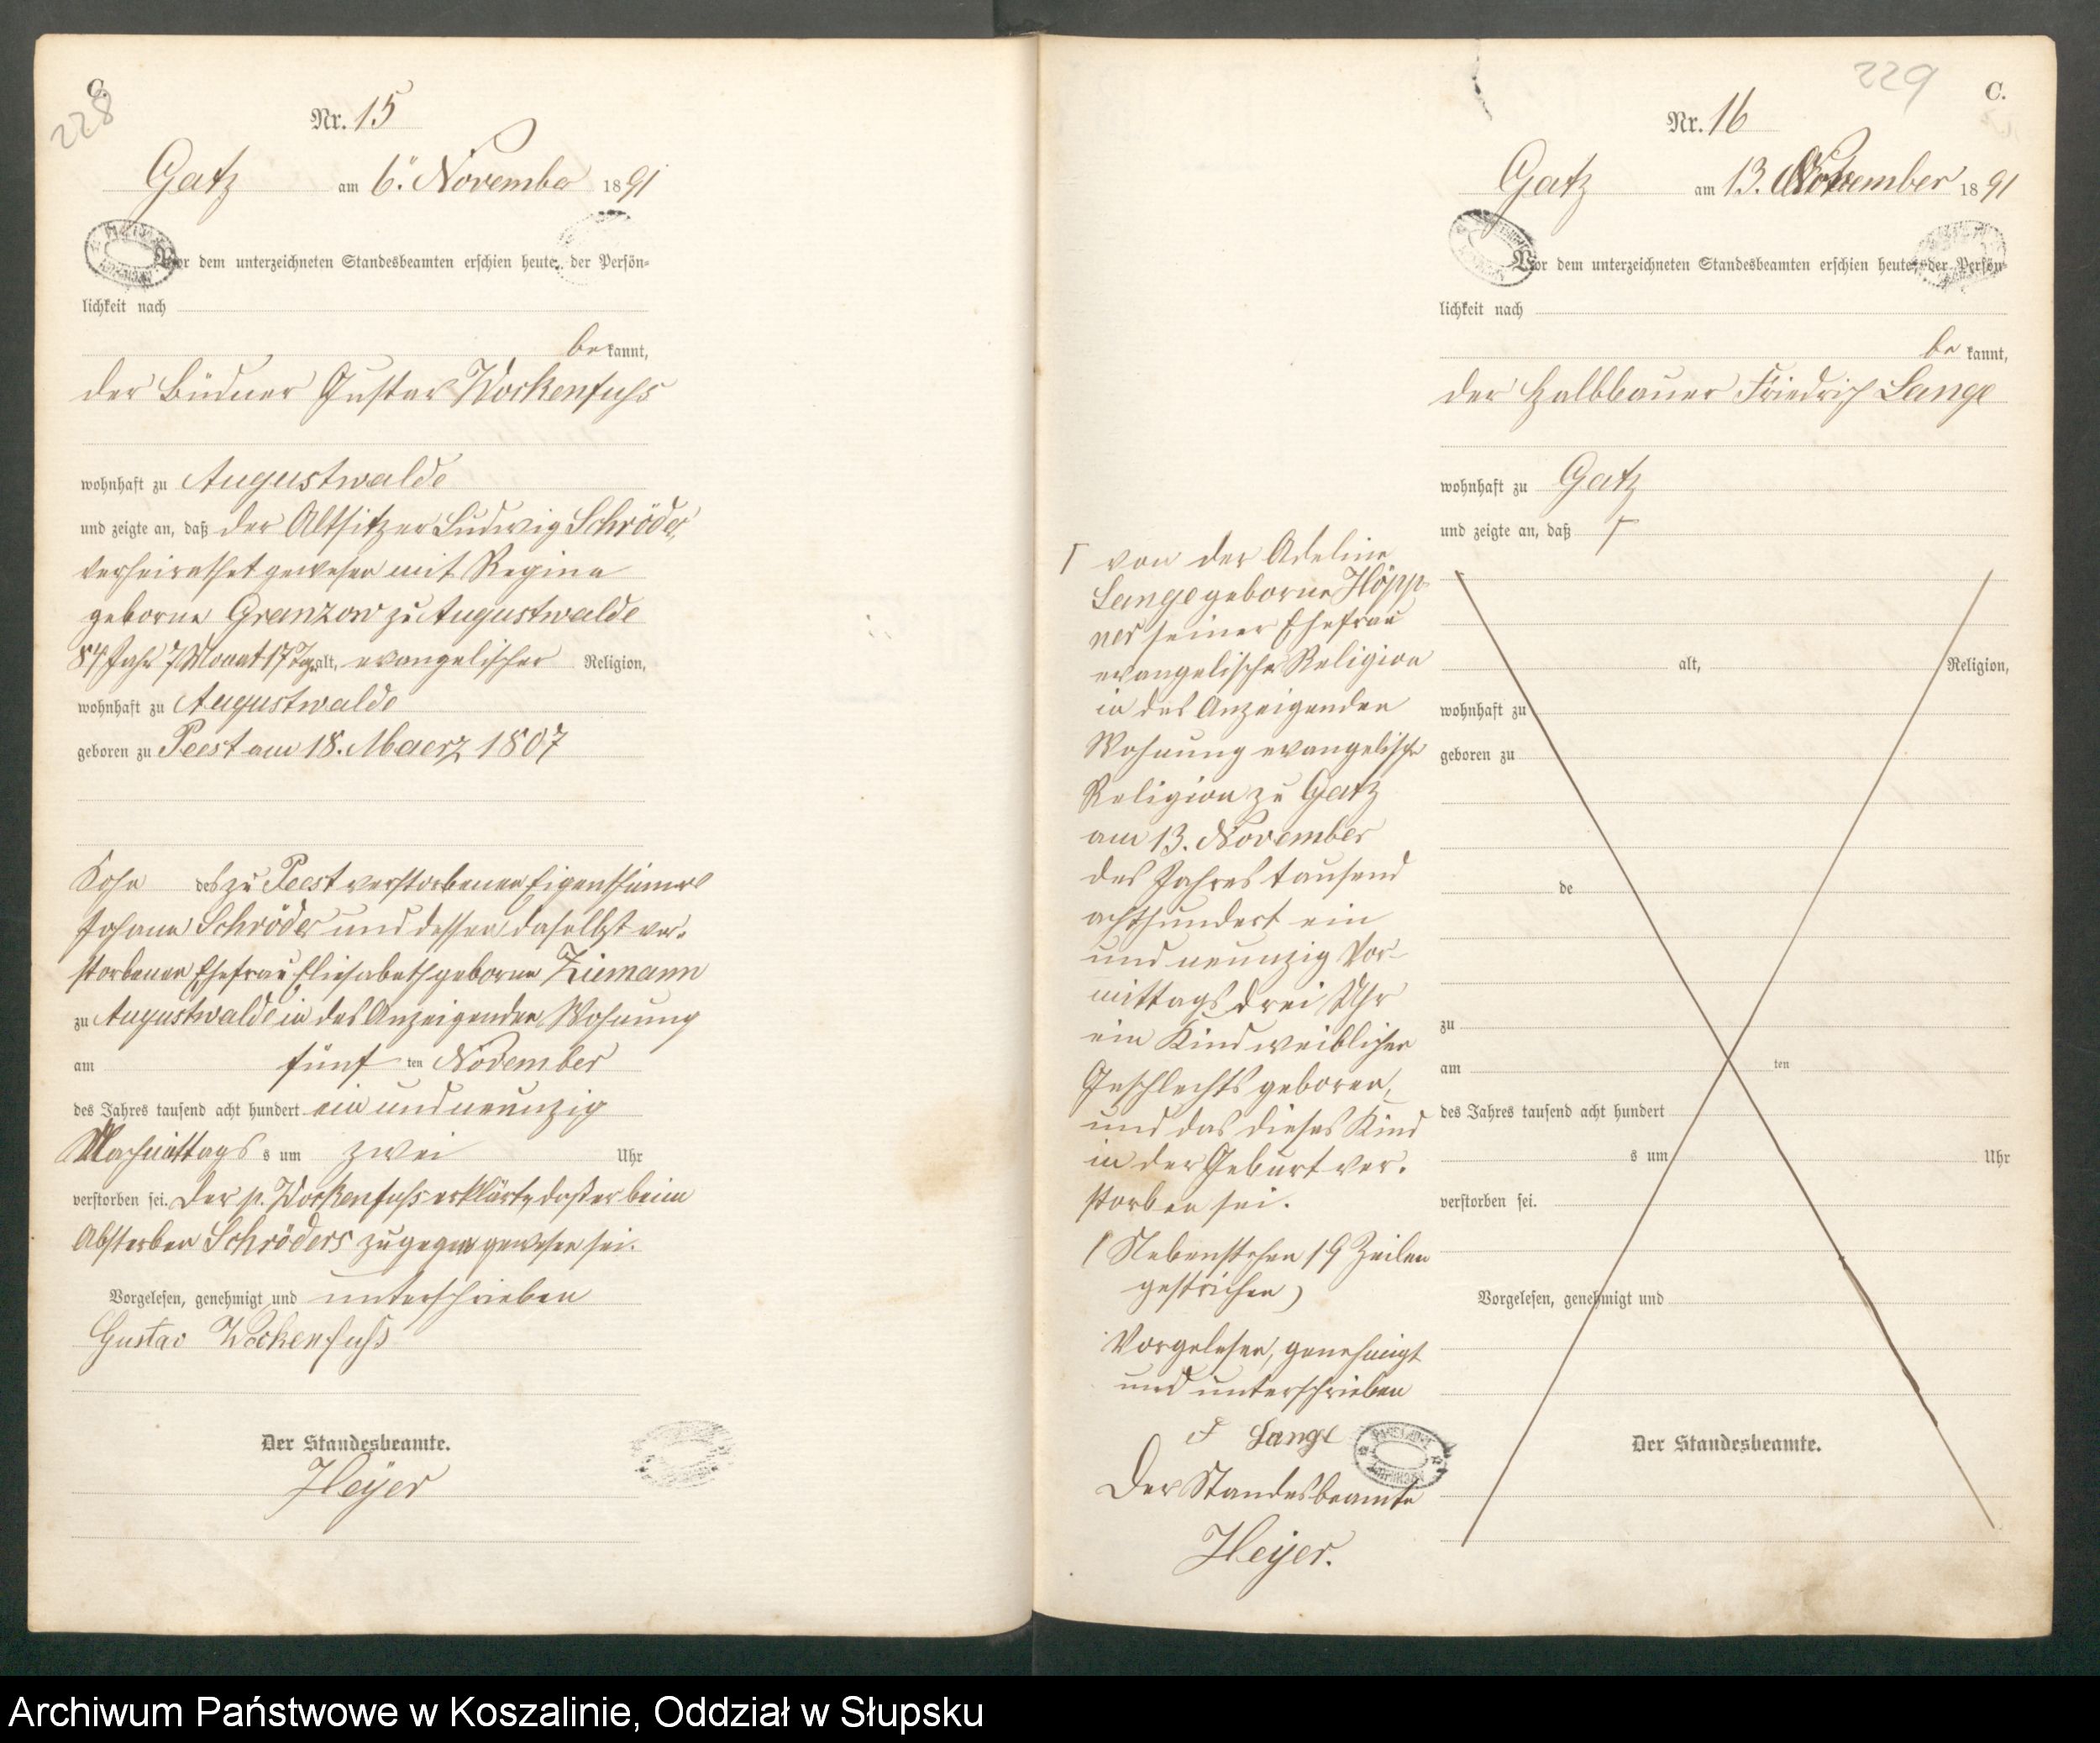 C.
228
Nr. 15
Gatz am 6. November 1891
Vor dem unterzeichneten Standesbeamten erschien heute, der Persön-
lichkeit nach
be kannt,
der Büdner Gustav Wockenfuss
wohnhaft zu Augustwalde
und zeigte an, daß der Altsitzer Ludwig Schröder,
verheirathet gewesen mit Regina
geborne Granzow zu Augustwalde
84 Jahr 7 Monat 17 Tage alt, evangelischer Religion,
wohnhaft zu Augustwalde
geboren zu Peest am 18. Maerz 1807
Sohn des zu Peest verstorbenen Eigenthümers
Johann Schröder und dessen daselbst ver-
storbenen Ehefrau Eliesabeth geborne Ziemann
zu Augustwalde in des Anzeigenden Wohnung
am fünf ten November
des Jahres tausend acht hundert ein und neunzig
Nachmittags s um zwei Uhr
verstorben sei. Der p. Wockenfuss erklärte, daß er beim
Absterben Schröders zugegen gewesen sei.
Vorgelesen, genehmigt und unterschrieben
Gustav Wockenfuß
Der Standesbeamte.
Heyer
229
C.
Nr. 16
Gatz am 13. November 1891
Vor dem unterzeichneten Standesbeamten erschien heute, der Persön-
lichkeit nach
be kannt,
der Halbbauer Friedrich Lange
wohnhaft zu Gatz
und zeigte an, daß
von der Adeline
Lange geborne Höpp-
ner seiner Ehefrau
evangelischer Religion
in des Anzeigenden
Wohnung evangelischer
Religion zu Gatz
am 13. November
des Jahres tausend
achthundert ein
und neunzig Vor-
mittags drei Uhr
ein Kind weiblichen
Geschlechts geboren,
und das dieses Kind
in der Geburt ver-
storben sei.
(Nebenstehen 19 Zeilen
gestrichen)
Vorgelesen, genehmigt
und unterschrieben
F Lange
Der Standesbeamte
Heyer.
alt, Religion,
wohnhaft zu
geboren zu
de
zu
am ten
des Jahres tausend acht hundert
s um Uhr
verstorben sei.
Vorgelesen, genehmigt und
Der Standesbeamte.
Archiwum Państwowe w Koszalinie, Oddział w Słupsku